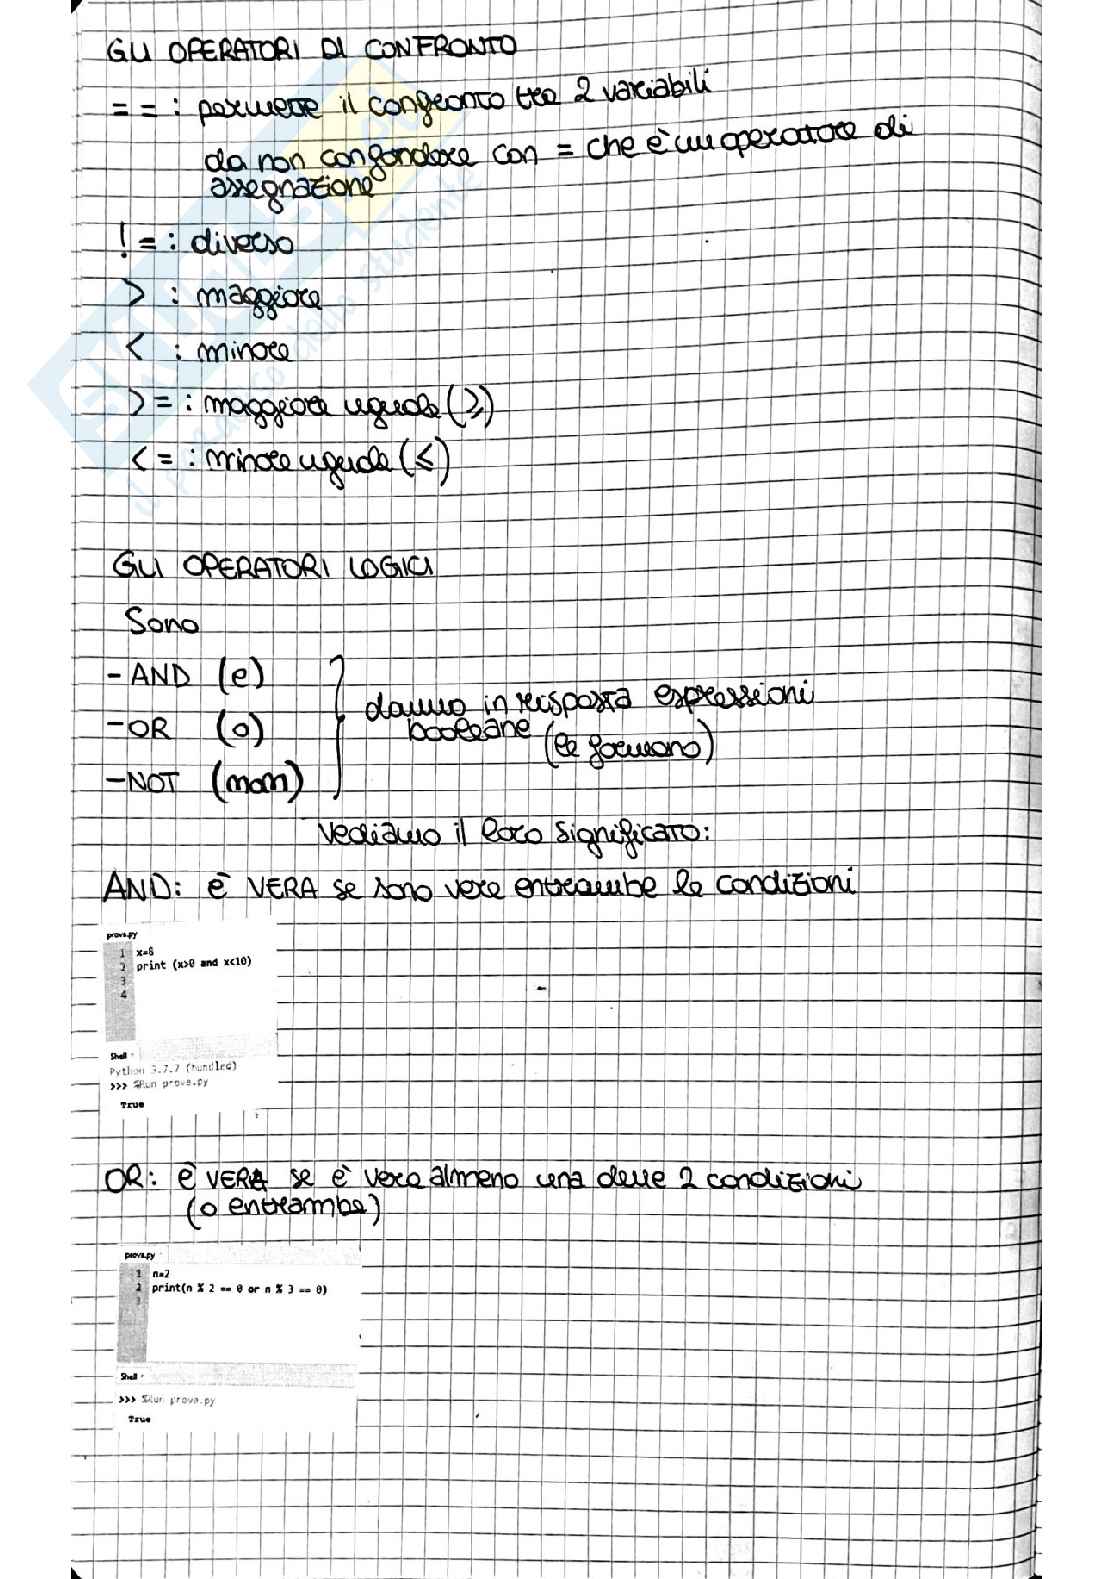 GLI OPERATORI DI CONFRONTO
= = : permette il confronto tra 2 variabili
da non confondere con = che è un operatore di
assegnazione
! = : diverso
> : maggiore
< : minore
> = : maggiore uguale (≥)
< = : minore uguale (≤)
GLI OPERATORI LOGICI
Sono
- AND (e)
- OR (o)
- NOT (non)
danno in risposta espressioni
booleane (le formano)
Vediamo il loro significato:
AND: è VERA se sono vere entrambe le condizioni
prova.py
1 x=8
2 print (x>0 and x<10)
3
4
Shell
Python 3.7.7 (bundled)
>>> %Run prova.py
True
OR: è VERA se è vera almeno una delle 2 condizioni
(o entrambe)
prova.py
1 n=2
2 print(n % 2 == 0 or n % 3 == 0)
3
Shell
>>> %Run prova.py
True